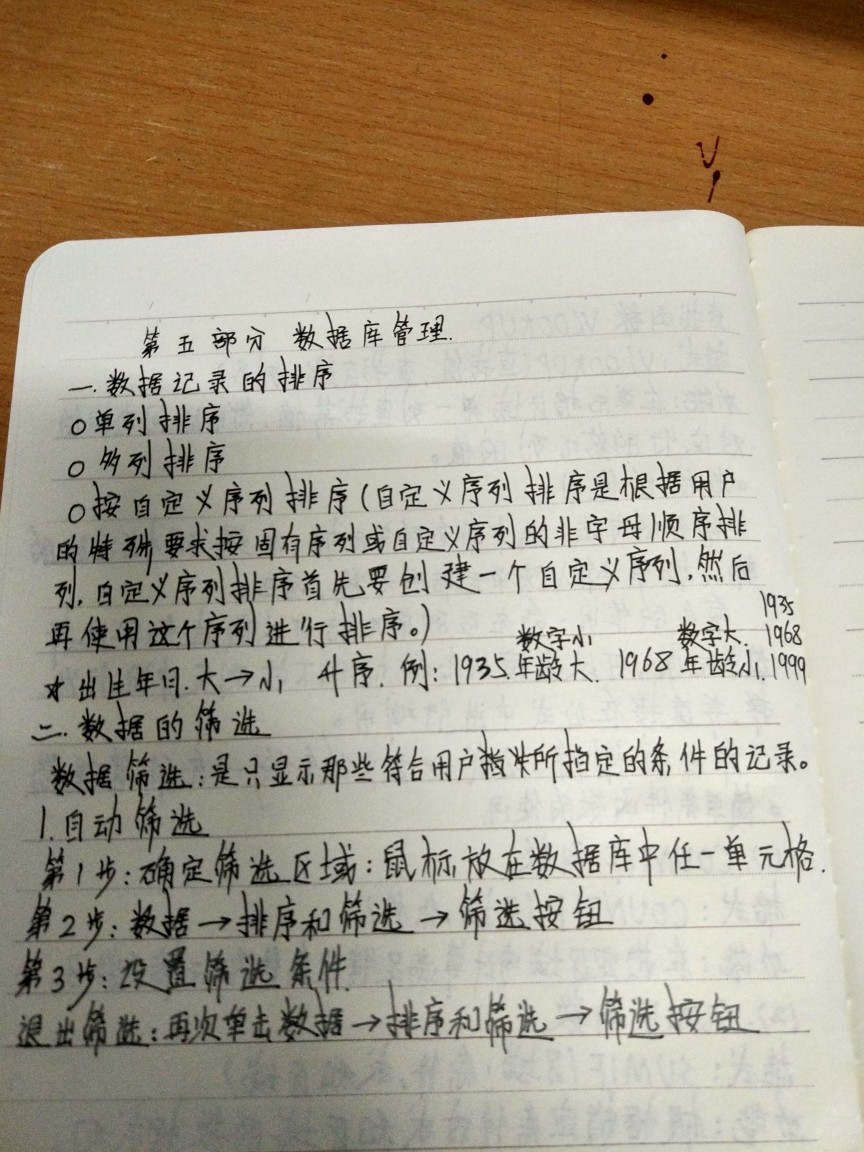 第五部分 数据库管理.
一.数据记录的排序
○单列排序
○多列排序
○按自定义序列排序(自定义序列排序是根据用户
的特殊要求按固有序列或自定义序列的非字母顺序排
列,自定义序列排序首先要创建一个自定义序列,然后
再使用这个序列进行排序。)
1935
数字小 数字大. 1968
☆出生年日.大→小 升序.例:1935.年龄大. 1968年龄小.1999
二.数据的筛选
数据筛选:是只显示那些符合用户所指定的条件的记录。
1.自动筛选
第1步:确定筛选区域:鼠标放在数据库中任一单元格.
第2步:数据→排序和筛选→筛选按钮
第3步:设置筛选条件.
退出筛选:再次单击数据→排序和筛选→筛选按钮